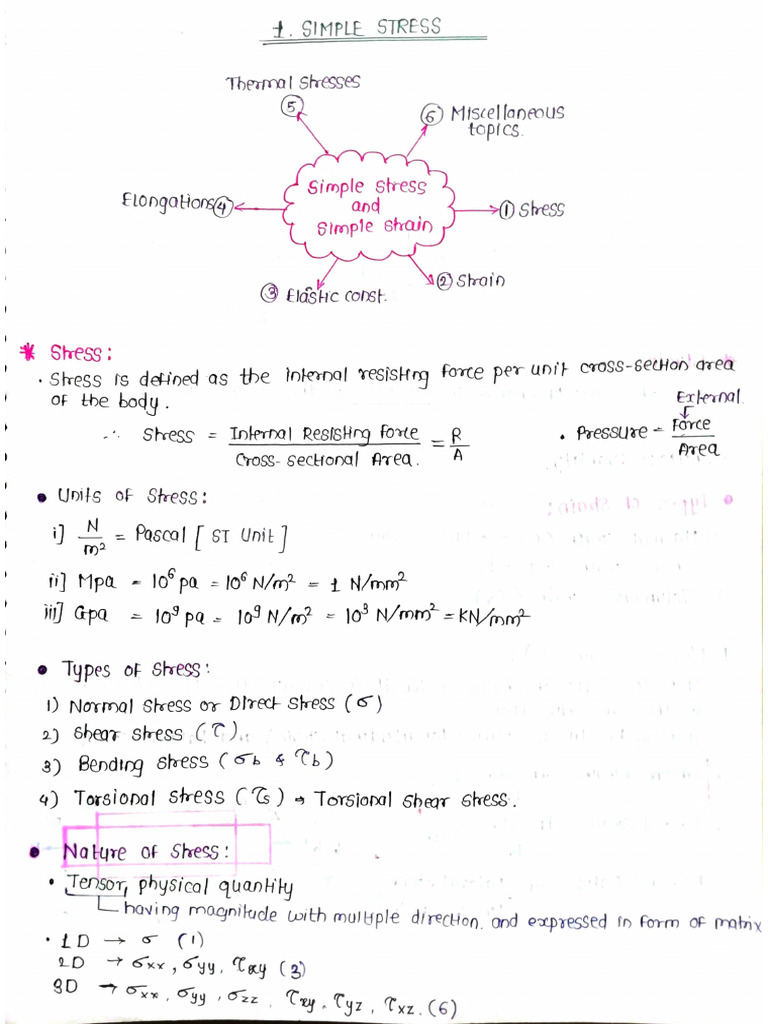 1. SIMPLE STRESS
Thermal Stresses
⑤
⑥ Miscellaneous
topics.
Elongations ④
Simple Stress
and
Simple Strain
① Stress
② Strain
③ Elastic const.
* Stress:
· Stress is defined as the internal resisting force per unit cross-section area
of the body.
∴ Stress = Internal Resisting Force / Cross-sectional Area. = R / A
• Pressure = External Force / Area
• Units of Stress:
i] N / m² = Pascal [ SI Unit ]
ii] Mpa = 10⁶ pa = 10⁶ N/m² = 1 N/mm²
iii] Gpa = 10⁹ pa = 10⁹ N/m² = 10³ N/mm² = KN/mm²
• Types of Stress:
1) Normal Stress or Direct Stress (σ)
2) Shear Stress (τ).
3) Bending Stress (σb & τb)
4) Torsional Stress (τs) → Torsional Shear Stress.
• Nature of Stress:
• Tensor, physical quantity
having magnitude with multiple direction. and expressed in form of matrix
· 1D → σ (1)
2D → σxx, σyy, τxy (3)
3D → σxx, σyy, σzz, τxy, τyz, τxz. (6)